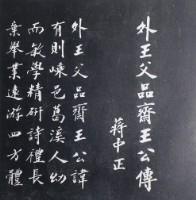 外王父品齋王公傳
蔣中正
外王父品齋王公諱
有則嵊邑葛溪人幼
而敏學精研詩禮長
棄舉業遠游四方體